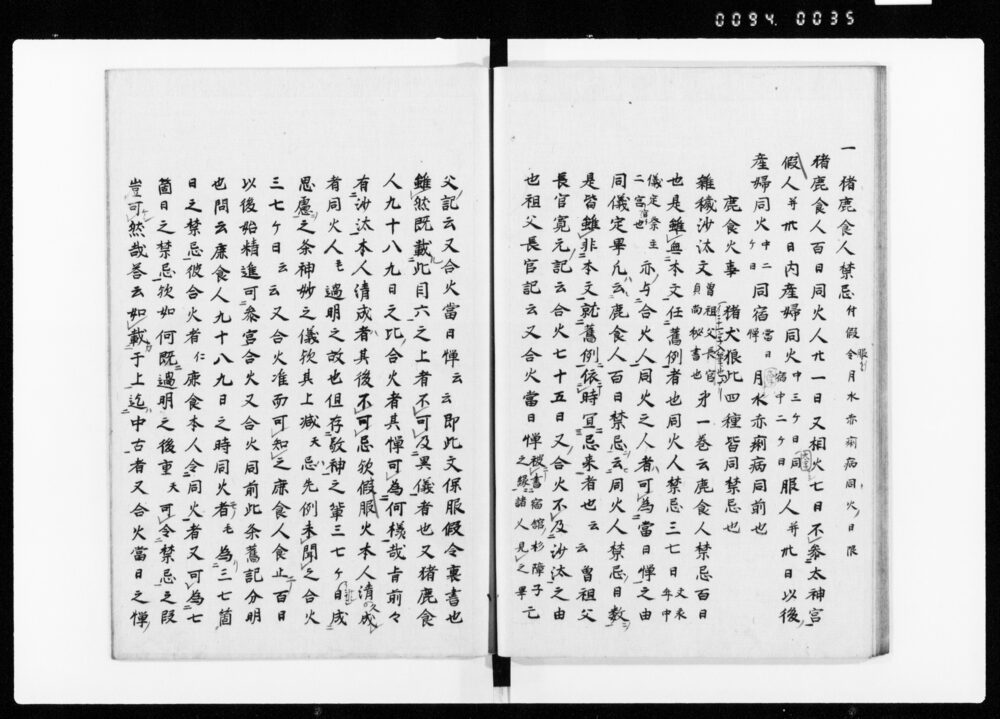 0094. 0035
一 猪鹿食人禁忌 付假令月水赤痢病同火日限
猪鹿食人百日同火人廿一日又相火七日不参太神宮
假人并卅日内産婦同火中三ケ日同宿中二ケ日服人并卅日以後
産婦同火中二ケ日同宿當日憚月水赤痢病同前也
鹿食火事 猪犬狼此四種皆同禁忌也
雜穢沙汰文曾祖父長官貞尚秘書也 第一巻云鹿食人禁忌百日
也是雖無本文任舊例者也同火人禁忌三七日文永年中
儀定祭主二宮也亦与合火人同火之人者可為當日憚之由
同儀定畢凡云鹿食人百日禁忌云同火人禁忌日数
是皆雖非本文就舊例依時宜忌来者也云云曾祖父
長官寛元記云合火七十五日又合火不及沙汰之由
也祖父長官記云又合火當日憚被書宿舘杉障子之縁諸人見之畢亡
父記云又合火當日憚云云即此文保服假令裏書也
雖然既載此目六之上者不可及異儀者也又猪鹿食
人九十八九日之比合火者其憚可為何様哉肯前々
有沙汰本人清成者其後不可忌欤假服火本人清成
者同火人モ過明之故也但存敬神之輩三七ケ日成
思慮之条神妙之儀欤其上减天忌先例未聞之合火
三七ケ日云云又合火准而可知之鹿食人食止百日
以後始精進可参宮合火又合火同前此条舊記分明
也問云鹿食人九十八九日之時同火者モ為三七箇
日之禁忌彼合火者仁鹿食本人令同火者又可為七
箇日之禁忌欤如何既過明之後重天可令禁忌之段
豈可然哉答云如載于上迄中古者又合火當日之憚